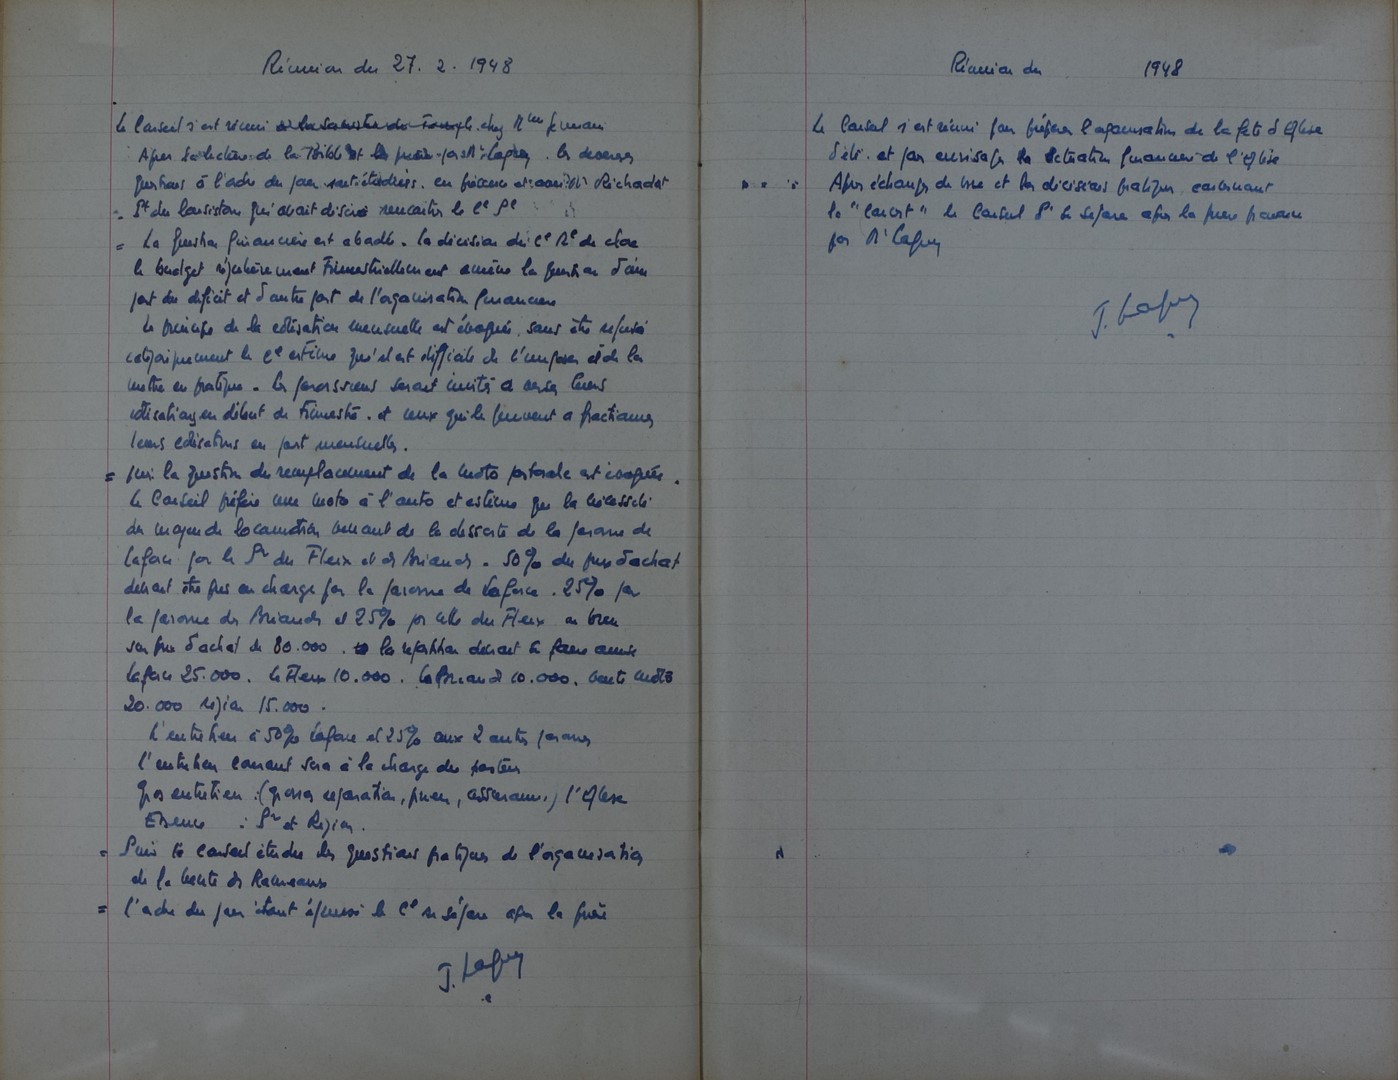 Réunion du 27. 2. 1948
Le Conseil s'est réuni à la Sacristie du Temple chez Mme
Après la lecture de la Bible et la prière par Mr Lafon. les diverses
questions à l'ordre du jour sont étudiées. en présence de Richardot
Pt du Consistoire qui avait désiré rencontrer le Cl Pl
= La question financière est abordée. la décision du Cl Rl de clore
le budget régulièrement Trimestriellement amène la question d'une
part du déficit et d'autre part de l'organisation financière
Le principe de la cotisation mensuelle est évoqué, sans être refusé
catégoriquement le Cl estime qu'il est difficile de l'imposer et de la
mettre en pratique. les paroissiens seront invités à verser leurs
cotisations en début de Trimestre. et ceux qui le peuvent à fractionner
leurs cotisations en part mensuelles.
= puis la question du remplacement de la moto pastorale est évoquée.
Le Conseil préfère une moto à l'auto et estime que la nécessité
du moyen de locomotion venant de la desserte de la paroisse de
Laforce par le Pr du Fleix et des Briands. 50% du prix d'achat
devant être pris en charge par la paroisse de Laforce. 25% par
la paroisse des Briands et 25% par celle du Fleix ou bien
sur prix d'achat de 80.000. la répartition devant se faire comme
Laforce 25.000. Le Fleix 10.000. les Briands 10.000. vente moto
20.000 région 15.000.
L'entretien à 50% Laforce et 25% aux 2 autres paroisses
l'entretien courant sera à la charge du pasteur
Gros entretien : (grosses réparation, pneu, assurance.) l'Eglise
Essence : Pr et Région.
= Puis le conseil étudie les questions pratiques de l'organisation
de la vente des Rameaux
= l'ordre du jour étant épuisé le Cl se sépare après la prière
J. Lafon
Réunion du 1948
Le Conseil s'est réuni pour préparer l'organisation de la fête d'Eglise
d'été. et pour envisager la situation financière de l'Eglise
Après échanges de vue et les décisions pratiques concernant
le "concert" le Conseil Pl se sépare après la prière prononcée
par Mr Lafon
J. Lafon